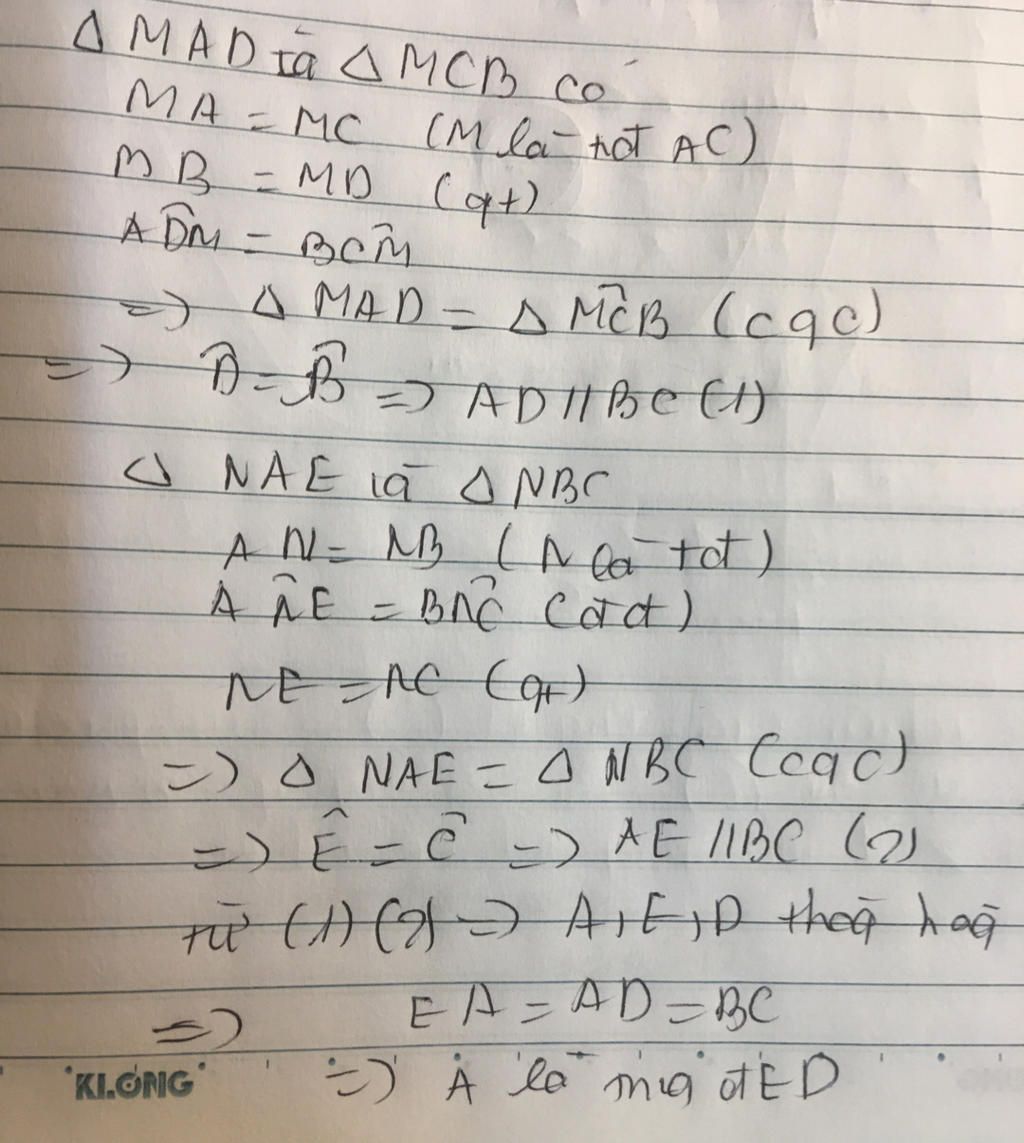 Δ MAD và Δ MCB có
MA = MC (M là tđ AC)
MB = MD (gt)
AD̂M = BCM̂
=> Δ MAD = Δ MĈB (cgc)
=> D̂ = B̂ => AD // BC (1)
Δ NAE và Δ NBC
AN = NB (N là tđ)
AN̂E = BNĈ (đđ)
NE = NC (gt)
=> Δ NAE = Δ NBC (cgc)
=> Ê = Ĉ => AE // BC (2)
từ (1) (2) => A, E, D thẳg hàg
=> EA = AD = BC
=> A là đ ED
KLONG